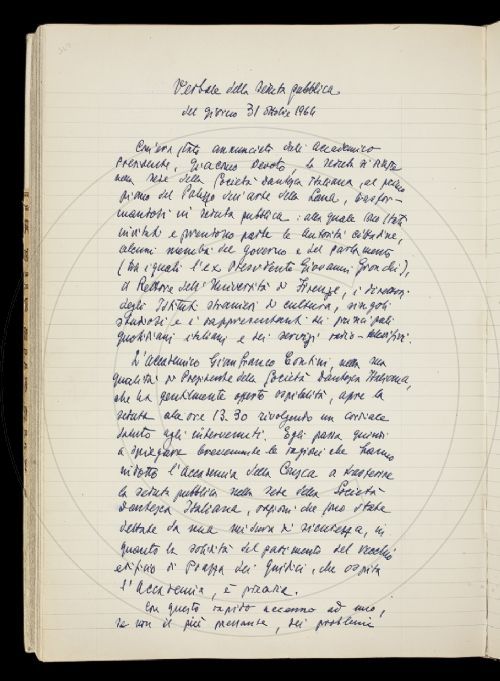 Verbale della seduta pubblica
del giorno 31 ottobre 1964
Com'era stato annunciato dall'Accademico
Presidente, Giacomo Devoto, la seduta si
nella sede della Società dantesca italiana, al primo
piano del Palazzo dell'arte della Lana, trasfor-
mandosi in seduta pubblica: alla quale sono stati
invitati e prendono parte le autorità cittadine,
alcuni membri del governo e del parlamento
(tra i quali l'ex Presidente Giovanni Gronchi),
il Rettore dell'Università di Firenze, i direttori
degli Istituti stranieri di cultura, singoli
studiosi e i rappresentanti dei principali
quotidiani italiani e dei servizi radio-televisivi.
L'accademico Gianfranco Contini, nella sua
qualità di Presidente della Società Dantesca Italiana,
che ha gentilmente offerto ospitalità, apre la
seduta alle ore 17.30 rivolgendo un cordiale
saluto agli intervenuti. Egli passa quindi
a spiegare brevemente le ragioni che hanno
indotto l'Accademia della Crusca a trasferire
la seduta pubblica nella sede della Società
dantesca Italiana, ragioni che sono state
dettate da una misura di sicurezza, in
quanto la solidità del pavimento del vecchio
edificio di Piazza dei Giudici, che ospita
l'Accademia, è precaria.
Con questo rapido accenno ad uno,
se non il più pressante, dei problemi